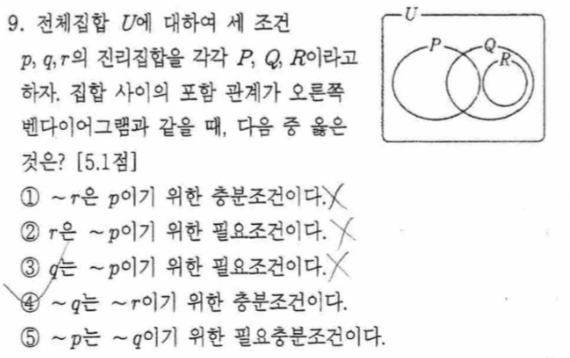 9. 전체집합 U에 대하여 세 조건
p, q, r의 진리집합을 각각 P, Q, R이라고
하자. 집합 사이의 포함 관계가 오른쪽
벤다이어그램과 같을 때, 다음 중 옳은
것은? [5.1점]
U
P
Q
R
① ~r은 p이기 위한 충분조건이다.
② r은 ~p이기 위한 필요조건이다.
③ q는 ~p이기 위한 필요조건이다.
④ ~q는 ~r이기 위한 충분조건이다.
⑤ ~p는 ~q이기 위한 필요충분조건이다.